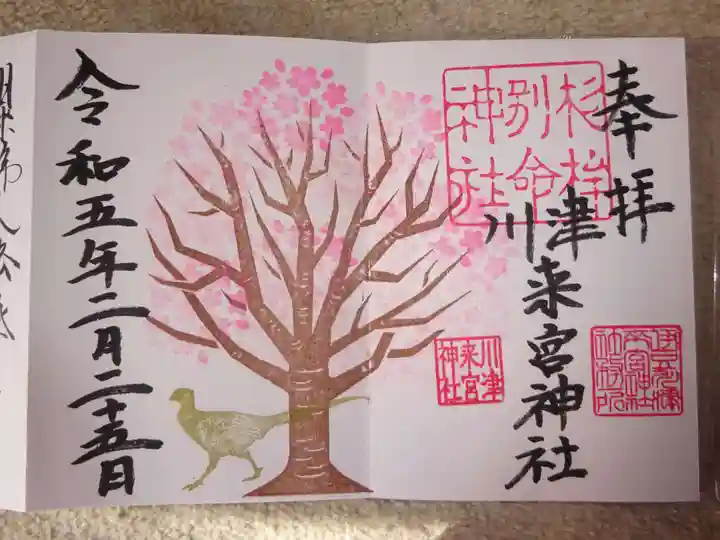 奉拝
杉桙
別命
神社
川津来宮神社
川津
来宮
神社
令和五年二月二十五日